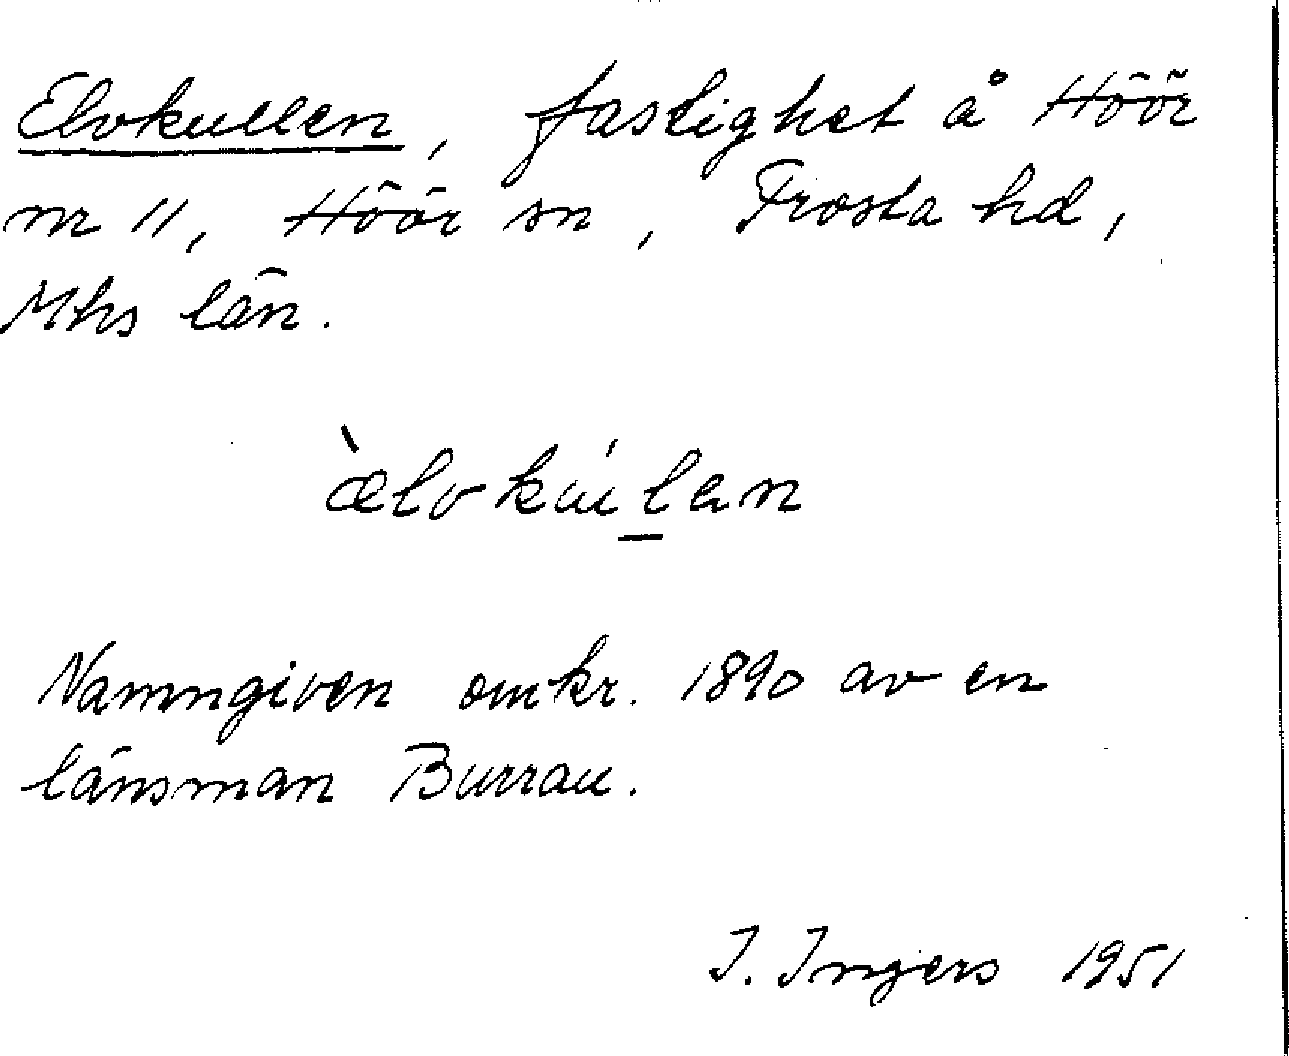 Elvkullen, fastighet å Höör
nr 11, Höör sn, Frosta hd,
Mhs län.
æ̀lvkúl̲an
Namngiven omkr. 1890 av en
länsman Burrau.
I. Ingers 1951